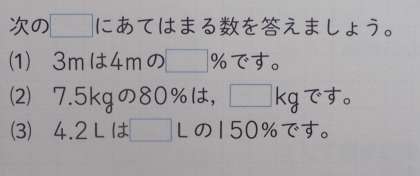 次の□にあてはまる数を答えましょう。
(1) 3mは4mの□%です。
(2) 7.5kgの80%は,□kgです。
(3) 4.2Lは□Lの150%です。